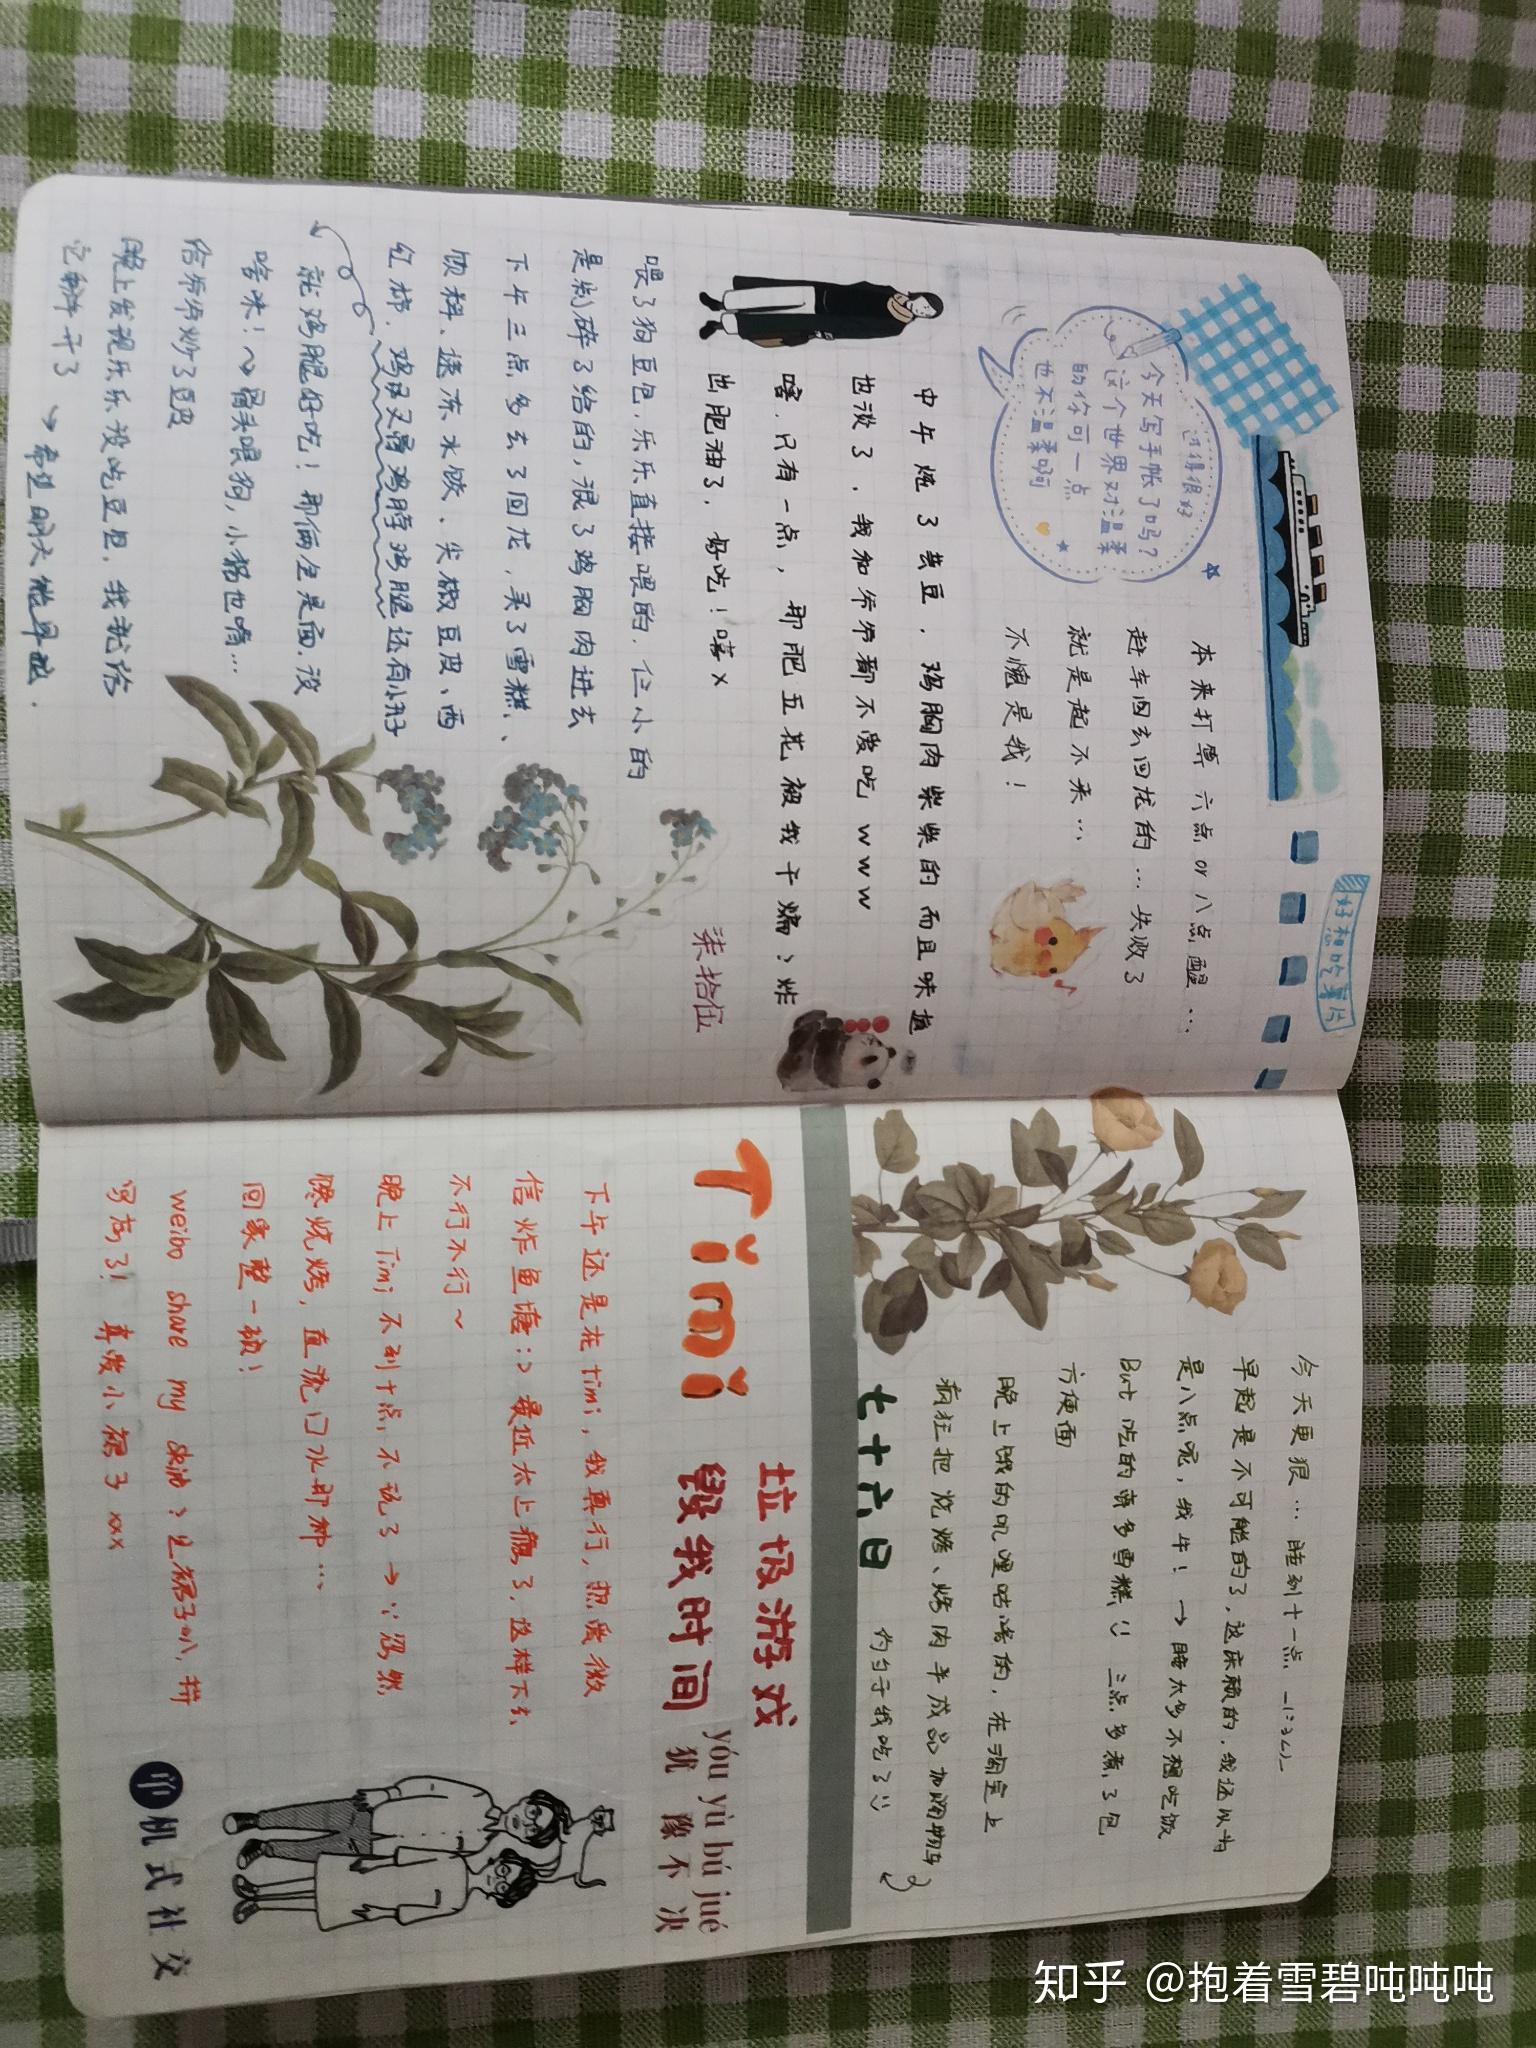 好想吃薯片
过得很好
今天写手帐了吗?
这个世界对温柔
的你可一点
也不温柔啊
本来打算六点or八点醒…
赶车回去回龙的…失败了
就是起不来…
不愧是我!
中午炖了芸豆,鸡胸肉柴柴的而且味道
也淡了,我和爷爷都不爱吃www
喏,只有一点,那肥五花被我干煸?炸
出肥油了,好吃!嘻x
柒拾伍
喂了狗豆包,乐乐直接喂的,仨小的
是掰碎了给的,混了鸡胸肉进去
下午三点多去了回龙,买了雪糕、
馅料、速冻水饺、尖椒豆皮、西
红柿、鸡叉骨鸡脖鸡腿还有小肝
就鸡腿好吃!那俩全是面,没
啥味!~骨头喂狗,小猫也啃…
给爷爷炒了豆皮
晚上发现乐乐没吃豆包,我就给
它掰开了 → 希望明天能早起.
今天更狠…睡到十一点
早起是不可能的了,这床赖的,我还以为
是八点呢,我牛! → 睡太多不想吃饭
But 吃的嘛多雪糕:) 三点多煮了包
方便面
晚上饿的叽哩咕噜的,在淘宝上
疯狂把烧烤、烤肉半成品加购物车
七十六日 约约于我吃了:)
Timi
垃圾游戏
毁我时间
yóu yù bú jué
犹豫不决
下午还是在timi,我真行,热爱微
信炸鱼塘:) 最近太上瘾了,这样下去
不行不行~
晚上Timi 不到十点,不玩了 → 忽然
馋烧烤,直流口水那种…
回家整一顿!
weibo share my 柴油?生裤子叭,拼
写店了! 真发小裤了xxx
叩机式社交
知乎 @抱着雪碧吨吨吨吨